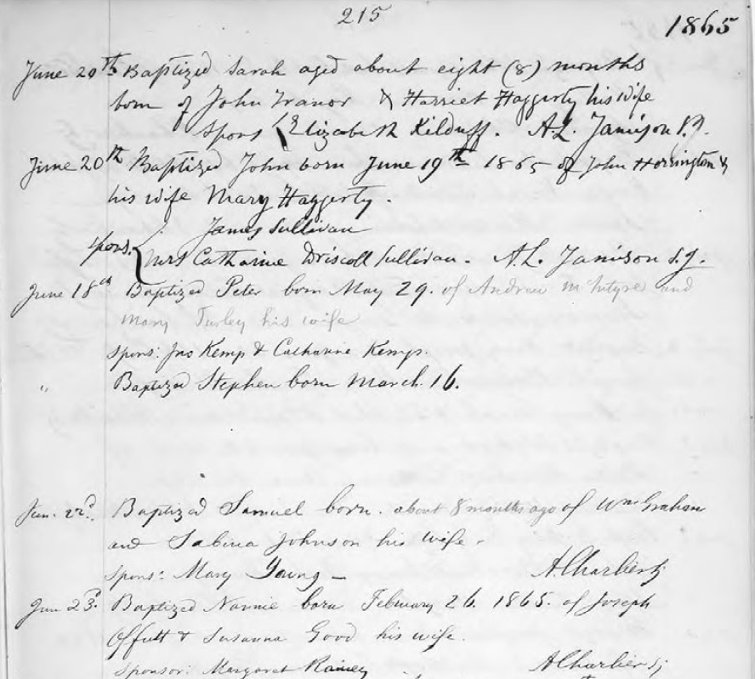 215
1865
June 20th Baptized Sarah aged about eight (8) months
born of John Tranor & Harriet Haggerty his wife
Spons { Elizabeth Kilduff. A.L. Jamison S.J.
June 20th Baptized John born June 19th 1865 of John Horrington &
his wife Mary Haggerty.
James Sullivan
Spons. { Mrs Catharine Driscoll Sullivan. A.L. Jamison S.J.
June 18th Baptized Peter born May 29. of Andrew McIntyre and
Mary Turley his wife
Spons: Jno Kemp & Catharine Kemp.
" Baptized Stephen born March 16.
Jun. 22d. Baptized Samuel born about 8 months ago of Wm Graham
and Sabina Johnson his wife.
Spons: Mary Young — A Charlier sj
Jun 23d. Baptized Nannie born February 26. 1865. of Joseph
Offutt & Susanna Good his wife.
Sponsor: Margaret Rainey A Charlier sj